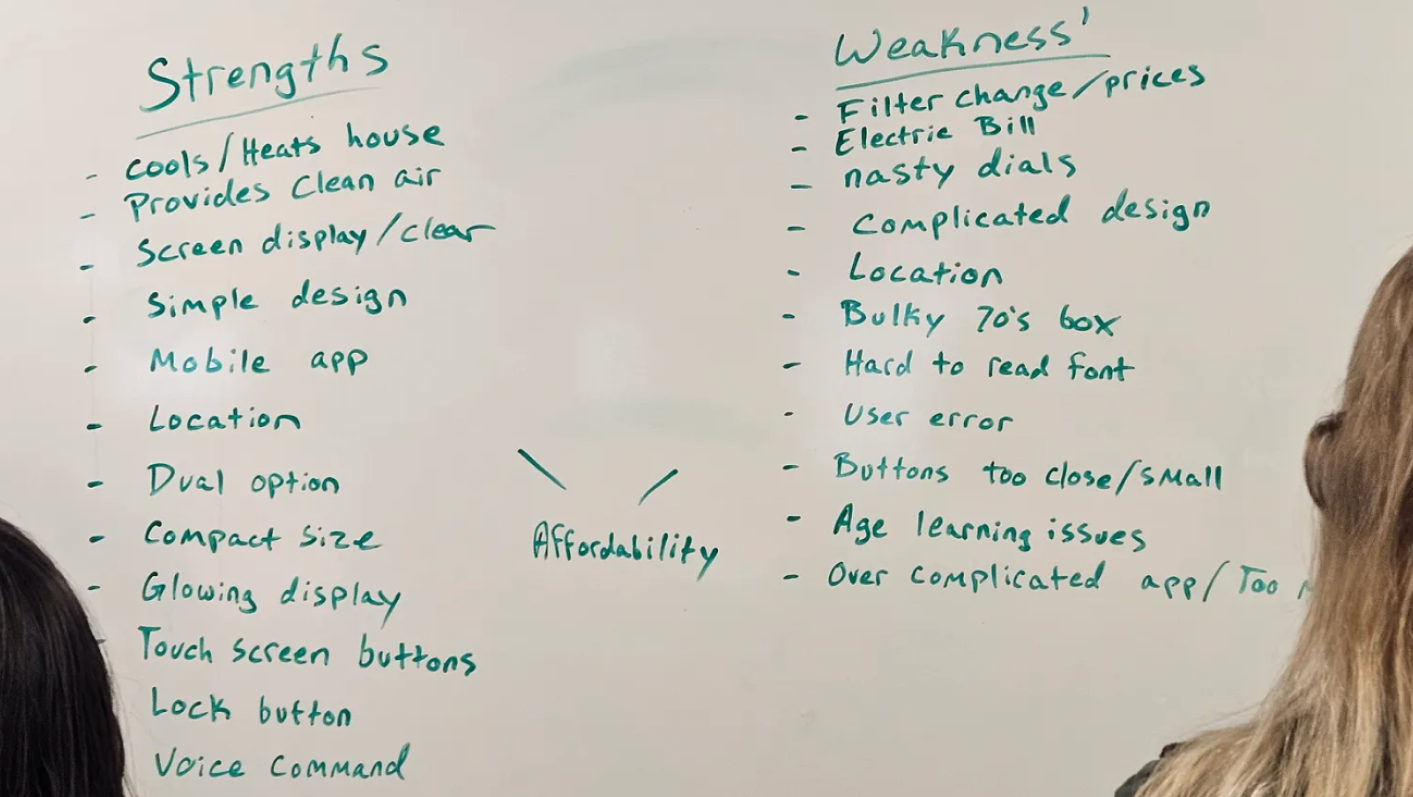 Strengths
- Cools/Heats house
- Provides Clean air
- Screen display/clear
- Simple design
- Mobile app
- Location
- Dual option
- Compact size
- Glowing display
- Touch screen buttons
Lock button
Voice Command
Affordability
Weakness'
- Filter change/prices
- Electric Bill
- nasty dials
- Complicated design
- Location
- Bulky 70's box
- Hard to read font
- User error
- Buttons too close/small
- Age learning issues
- Over complicated app/Too